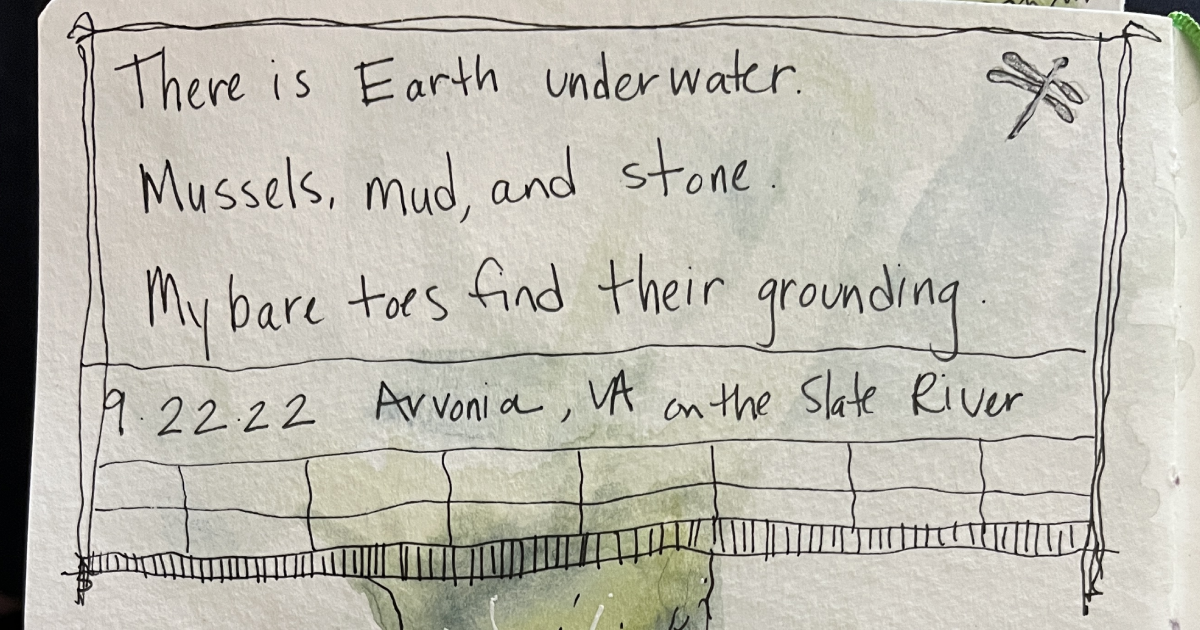 There is Earth underwater.
Mussels, mud, and stone.
My bare toes find their grounding.
9.22.22 Arvonia, VA on the Slate River